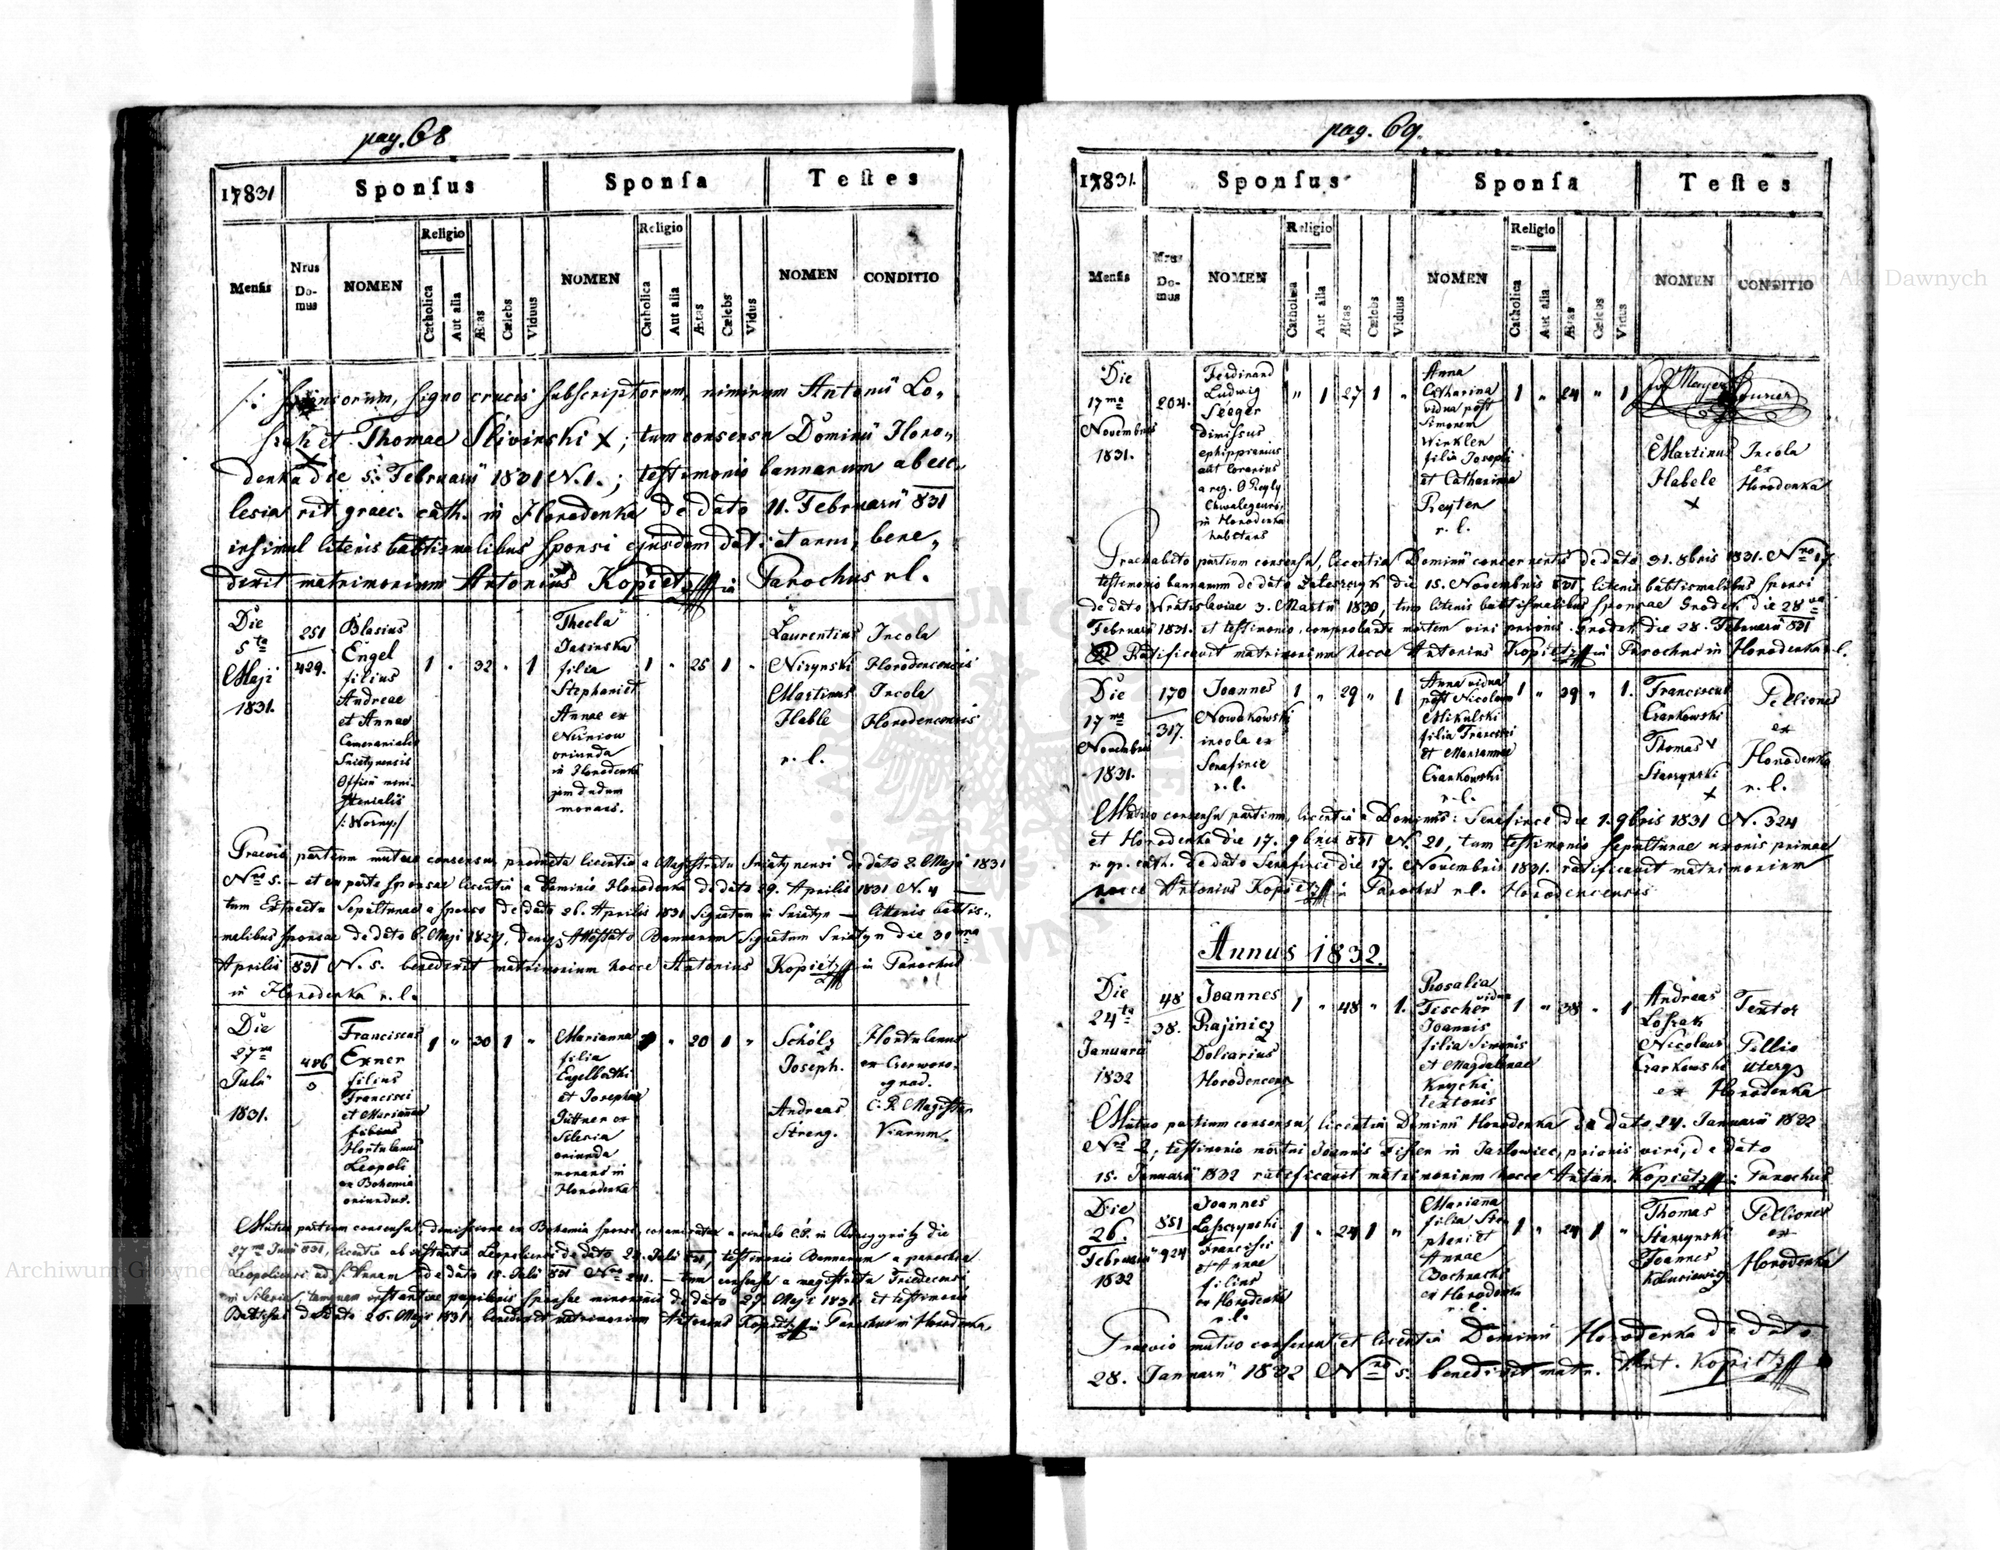 pag. 68
17831
Sponsus
Sponsa
Testes
Mensis
Nrus Domus
NOMEN
Religio
Catholica
Aut alia
Ætas
Cœlebs
Viduus
NOMEN
Religio
Catholica
Aut alia
Ætas
Cœlebs
Vidus
NOMEN
CONDITIO
signo crucis subscriptorum, nimirum Antonii Lo„
et Thomae Sliwinski X; tum consensu Dominii Horo„
denka die 5. Februarii 1831 N. 1.; testimonio bannorum ab ecc„
lesia rit. graec. cath. in Horodenka de dato 11. Februarii 831
insimul literis babtismalibus sponsi ejusdem dati et anni, bene„
dixit matrimonium Antonius Kopietz Parochus r.l.
Die
5ta
Maji
1831.
251
429.
Blasius
Engel
filius
Andreae
et Annae
Sniatynensis
/: Wozny :/
1 „ 32 „ 1
Thecla
Jasinska
filia
Stephani et
Annae ex
oriunda
in Horodenka
jam dudum
morans.
1 „ 25 1 „
Laurentius
Nizynski
Martinus
Hable
r. l.
Incola
Horodencensis
Incola
Horodencensis
Praevio partium mutuo consensu, producta licentia a Magistratu Sniatynensi de dato 2. Maji 1831
Nro 5. – et ex parte sponsae licentia a Dominio Horodenka de dato 29. Aprilis 1831 N. 4 —
tum Extractu Sepulturae a sponso de dato 26. Aprilis 1831 Signatum in Sniatyn — literis babtis„
malibus sponsae de dato 6. Maji 1827, denique Attestato Bannorum Signatum Sniatyn die 30ma
Aprilis 831 N. 5. benedixit matrimonium hocce Antonius Kopietz Parochus
in Horodenka r.l.
Die
27ma
Julii
1831.
486
0
Franciscus
Exner
filius
Francisci
et Mariannae
Hortulanus
Leopoli
ex Bohemia
oriundus.
1 „ 30 1 „
Marianna
filia
Engelberthi
et Josephae
Püttner ex
Silesia
oriunda
morans in
Horodenka
20 1 „
Schölz
Joseph.
Andreas
Streng.
Hortulanus
ex Czerwono„
grad.
C: R. Magister
Viarum.
Mutuo partium consensu, demissione ex Bohemia sponsi, in Königgrätz die
27ma Junii 831, licentia ab Leopoliensi de dato Julii 831, testimonio Bannorum a parochia
Leopoliensi ad S. Annam de dato 15. Julii 831 Nro — tum consensu a magistratu Friedecensi
in Silesia, tamquam instantiae pupilaris sponsae minorennis de dato 27. Maji 1831. et testimonio
de dato 26. Maji 1831, benedixit matrimonium Antonius Kopietz Parochus in Horodenka
pag. 69.
17831.
Sponsus
Sponsa
Testes
Mensis
Nrus Domus
NOMEN
Religio
Catholica
Aut alia
Ætas
Cœlebs
Viduus
NOMEN
Religio
Catholica
Aut alia
Ætas
Cœlebs
Vidus
NOMEN
CONDITIO
Die
17ma
Novembris
1831.
204.
Ferdinand
Ludwig
Seeger
dimissus
ephippiarius
aut Lorarius
a reg. O Reyly
Chwalegeurs,
in Horodenka
habitans
„ 1 27 1 „
Anna
Catharina
vidua post
Simonem
Winkler
filia Josephi
et Catharina
Reyter
r. l.
1 „ 24 „ 1
Martinus
Habele
X
Incola
ex
Horodenka
Praehabito partium consensu, licentia Dominii concernentis de dato 31. 8bris 1831. Nro 17.
testimonio bannorum de dato Zaleszczyk die 15. Novembris 831 literis babtismalibus sponsi
de dato Wratislaviae 3. Martii 1830, tum literis babtismalibus sponsae Grodek die 28va
Februarii 1831. et testimonio comprobante mortem viri prioris Grodek die 28. Februarii 831
Ratificavit matrimonium hocce Antonius Kopietz Parochus in Horodenka r.l.
Die
17ma
Novembris
1831.
170
317.
Joannes
Nowakowski
incola ex
Serafince
r. l.
1 „ 29 „ 1
Anna vidua
post Nicolaum
Mikulski
filia Francisci
et Mariannae
Czarkowski
r. l.
1 „ 39 „ 1.
Franciscus
Czarkowski
Thomas
Starzynski
X
Pelliones
ex
Horodenka
r. l.
Mutuo consensu partium, licentia a Dominiis: Serafince die 1. 9bris 1831 N. 324
et Horodenka die 17. 9bris 831 N. 21, tum testimonio sepulturae uxoris primae
r. gr. cath. de dato Serafince die 17. Novembris 1831. ratificavit matrimonium
hocce Antonius Kopietz Parochus r.l. Horodencensis
Annus 1832.
Die
24ta
Januarii
1832
48
38.
Joannes
Rajinicz
Doliarius
Horodencens
1 „ 48 „ 1.
Rosalia
Fischer vidua
Joannis
filia Simonis
et Magdalenae
Krychi
textoris
1 „ 38 „ 1
Andreas
Loszak
Nicolaus
Czarkowski
Textor
Pellio
uterq
ex Horodenka
Mutuo partium consensu, licentia Dominii Horodenka de dato 24. Januarii 1832
Nro 2, testimonio mortui Joannis Fischer in Jazlowiec, prioris viri, de dato
15. Januarii 1832 ratificavit matrimonium hocce Anton. Kopietz Parochus
Die
26.
Februarii
1832
851
924
Joannes
Laszczynski
Francisci
et Annae
filius
ex Horodenka
r. l.
1 „ 24 1 „
Marianna
filia Ste„
phani et
Annae
Bochnacki
ex Horodenka
r. l.
1 „ 24 1 „
Thomas
Starzynski
Joannes
Pelliones
ex
Horodenka
Praevio mutuo consensu, et licentia Dominii Horodenka de dato
28. Januarii 1832 Nro 5. benedixit matr. Ant. Kopietz
Archiwum Główne Akt Dawnych